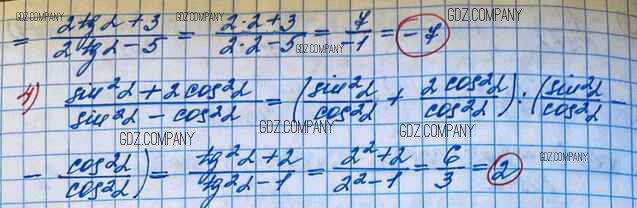 GDZ.COMPANY GDZ.COMPANY
= (2tgα + 3)/(2tgα - 5) = (2·2+3)/(2·2-5) = 7/-1 = -7
GDZ.COMPANY GDZ.COMPANY GDZ.COMPANY
4) (sin²α + 2cos²α)/(sin²α - cos²α) = (sin²α/cos²α + 2cos²α/cos²α) : (sin²α/cos²α -
GDZ.COMPANY GDZ.COMPANY GDZ.COMPANY
- cos²α/cos²α) = (tg²α + 2)/(tg²α - 1) = (2²+2)/(2²-1) = 6/3 = 2
GDZ.COMPANY GDZ.COMPANY